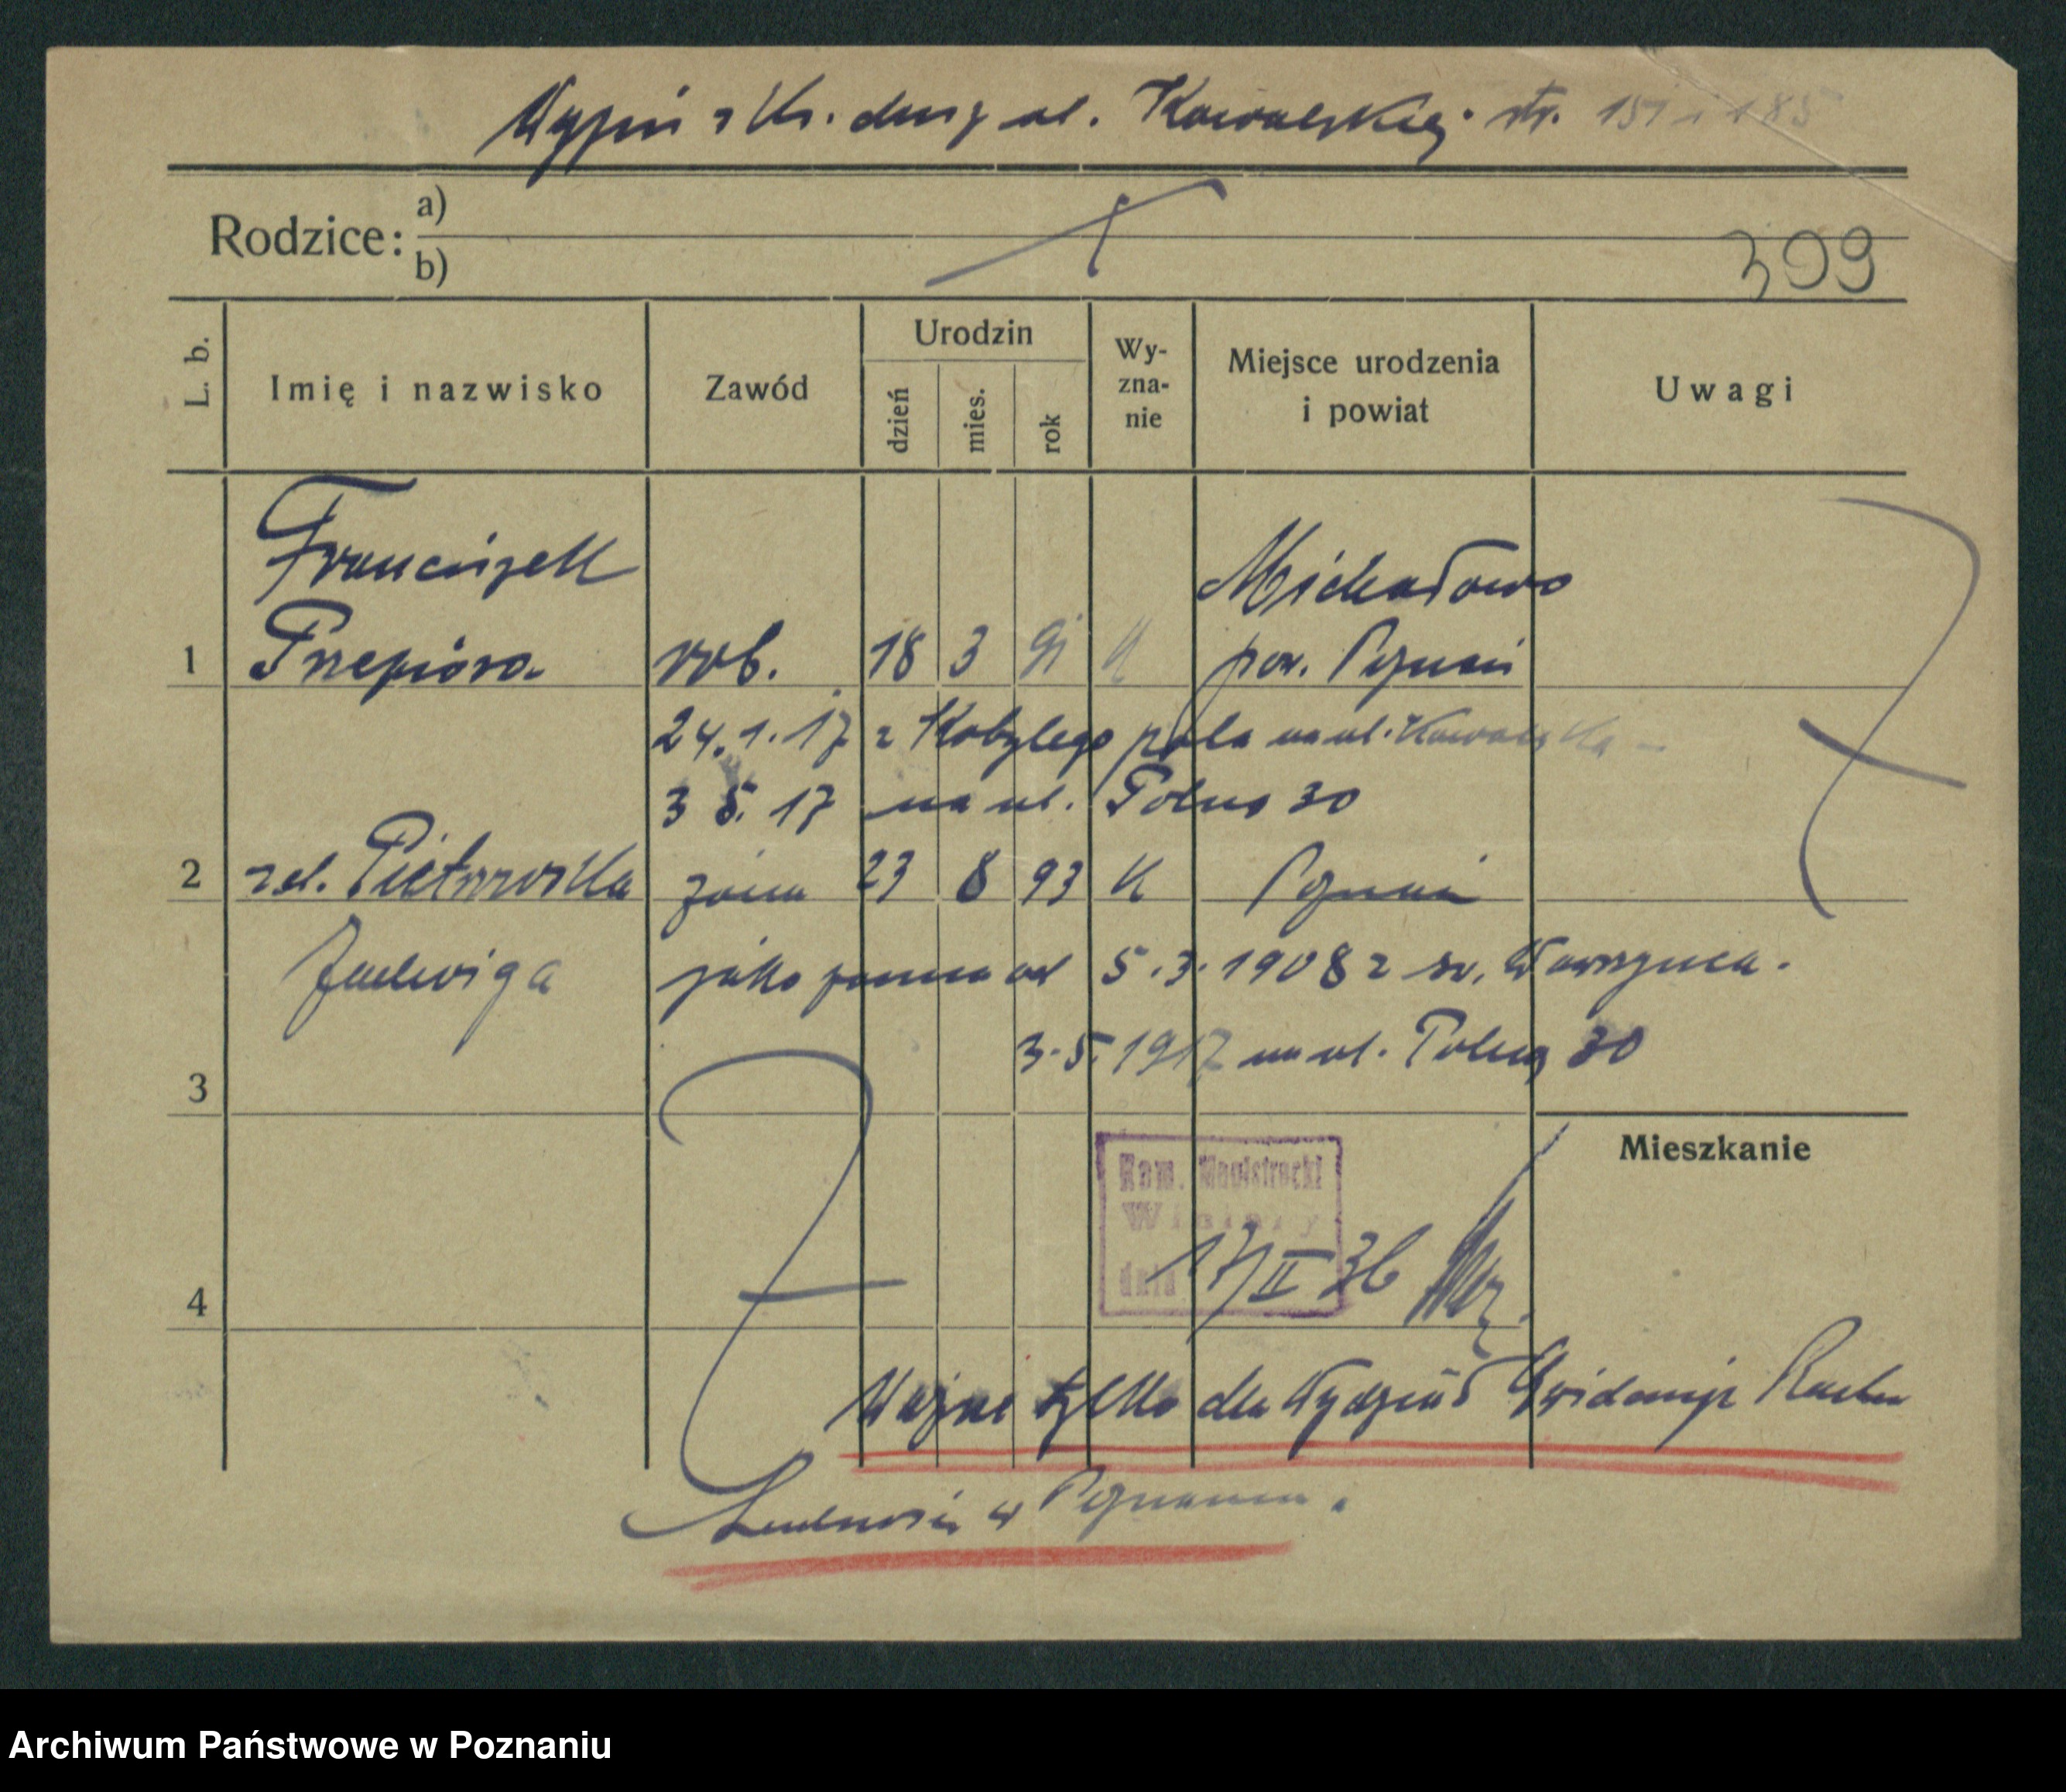 Wypis z Ks. dusz ul. Kowalskiej str. 151 i 185
Rodzice: a)
b)
309
L. b.
Imię i nazwisko
Zawód
Urodzin
dzień
mies.
rok
Wy-
zna-
nie
Miejsce urodzenia
i powiat
Uwagi
Franciszek
Michałowo
1 Przepióra rob. 18 3 91 K pow. Poznań
24.1.17 z Kobylego pola na ul. Kowalska
3 5. 17 na ul. Polna 30
2 zd. Pietrowska żona 23 8 93 K Poznań
Jadwiga jako panna od 5.3.1908 z św. Wawrzyńca.
3.5.1917 na ul. Polną 30
3
Mieszkanie
Kom. Magistracki
Winiary
dnia 17/II 36
4
Ważne tylko dla Wydziału Ewidencji Ruchu
Ludności w Poznaniu.
Archiwum Państwowe w Poznaniu